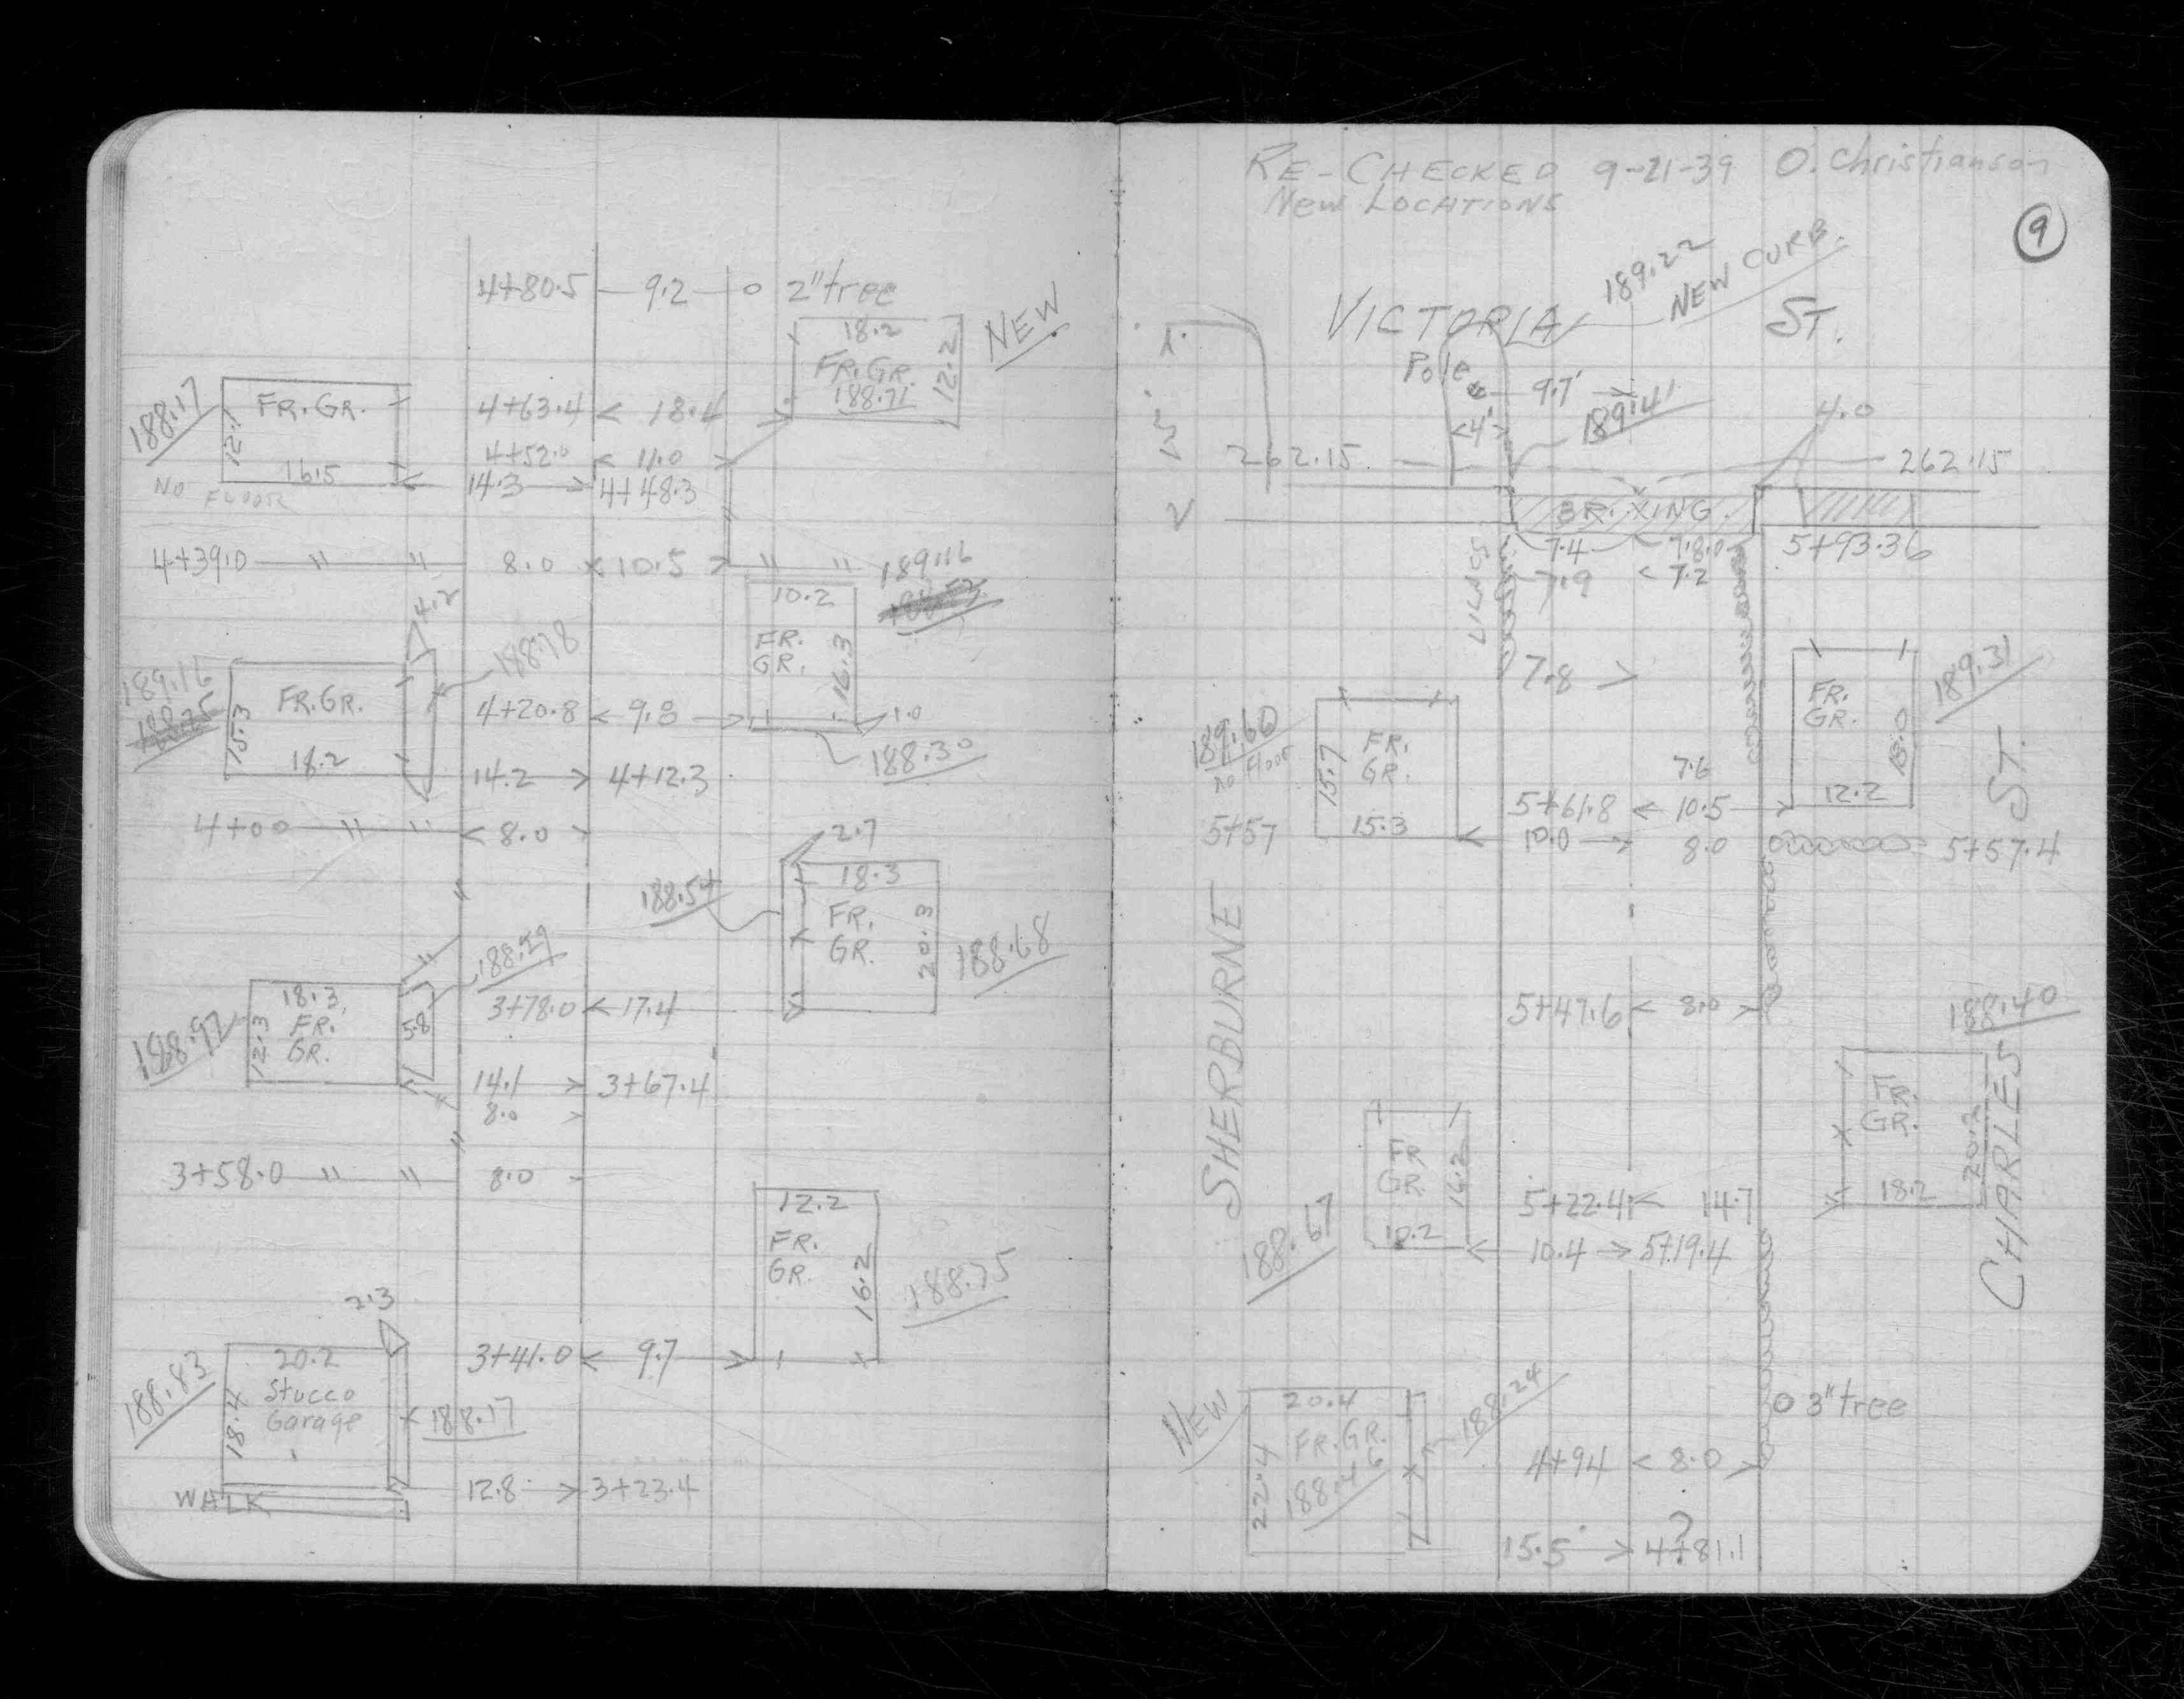 4+80.5 — 9.2 — o 2" tree
18.2
FR. GR.
188.71
12.2
NEW
188.17
FR. GR.
12.1
16.5
NO FLOOR
4+63.4 < 18.4
4+52.0 < 11.0 >
14.3 > 4+48.3
4+39.0 — " — " 8.0 × 10.5 > " "
189.16
10.2
FR.
GR.
16.3
4.2
188.78
189.16
FR. GR.
15.3
18.2
4+20.8 < 9.8 >
1.0
188.30
14.2 > 4+12.3
4+00 — " — " < 8.0 >
2.7
188.54
18.3
FR.
GR.
20.3
188.68
188.59
188.92
18.3
FR.
GR.
12.3
5.8
3+78.0 < 17.4
14.1 > 3+67.4
8.0 >
3+58.0 — " — " 8.0 -
12.2
FR.
GR.
16.2
188.75
2.3
3+41.0 < 9.7 >
188.83
20.2
Stucco
Garage
18.4
188.17
12.8 > 3+23.4
WALK
RE-CHECKED 9-21-39 O. Christianson
New LOCATIONS
9
189.22
NEW CURB.
VICTORIA ST.
Pole
9.7'
<4'>
189.41
4.0
262.15 262.15
BR. XING.
7.4
5+93.36
7.9 < 7.2
LILACS
7.8 >
FR.
GR.
18.0
12.2
189.31
189.60
no Floor
FR.
GR.
15.7
15.3
7.6
5+61.8 < 10.5
5+57 10.0 > 8.0 5+57.4
ST.
SHERBURNE
5+47.6 < 8.0 >
188.40
FR.
GR.
20.2
18.2
CHARLES
FR
GR.
16.2
10.2
188.67
5+22.4 < 14.7
10.4 > 5+19.4
o 3" tree
NEW
20.4
FR. GR.
188.46
22.4
188.24
4+94 < 8.0 >
?
15.5 > 4+81.1